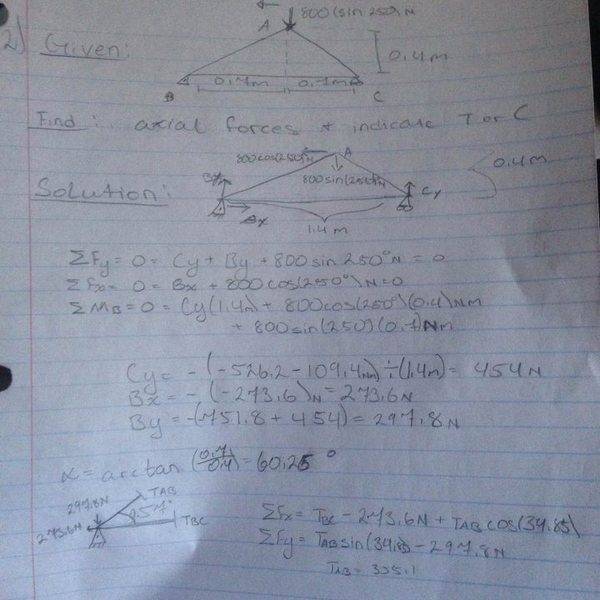 2) Given:
A
800(sin 250°)N
0.4m
0.7m 0.7m
B C
Find: axial forces + indicate T or C
800cos(250°)N
A
800sin(250°)N
0.4m
Solution:
By
Cy
Bx
1.4m
ΣFy = 0 = Cy + By + 800 sin 250°N = 0
ΣFx = 0 = Bx + 800cos(250°)N = 0
ΣMB = 0 = Cy(1.4m) + 800cos(250°)(0.4)Nm
+ 800sin(250)(0.7)Nm
Cy = -(-526.2 - 109.4Nm) ÷ (1.4m) = 454N
Bx = -(-273.6)N = 273.6N
By = -(-751.8 + 454) = 297.8N
α = arctan (0.7/0.4) = 60.25°
297.8N
TAB
273.6N
TBC
ΣFx = TBC - 273.6N + TAB cos(34.85)
ΣFy = TAB sin(34.85) - 297.8N
TAB = 335.1